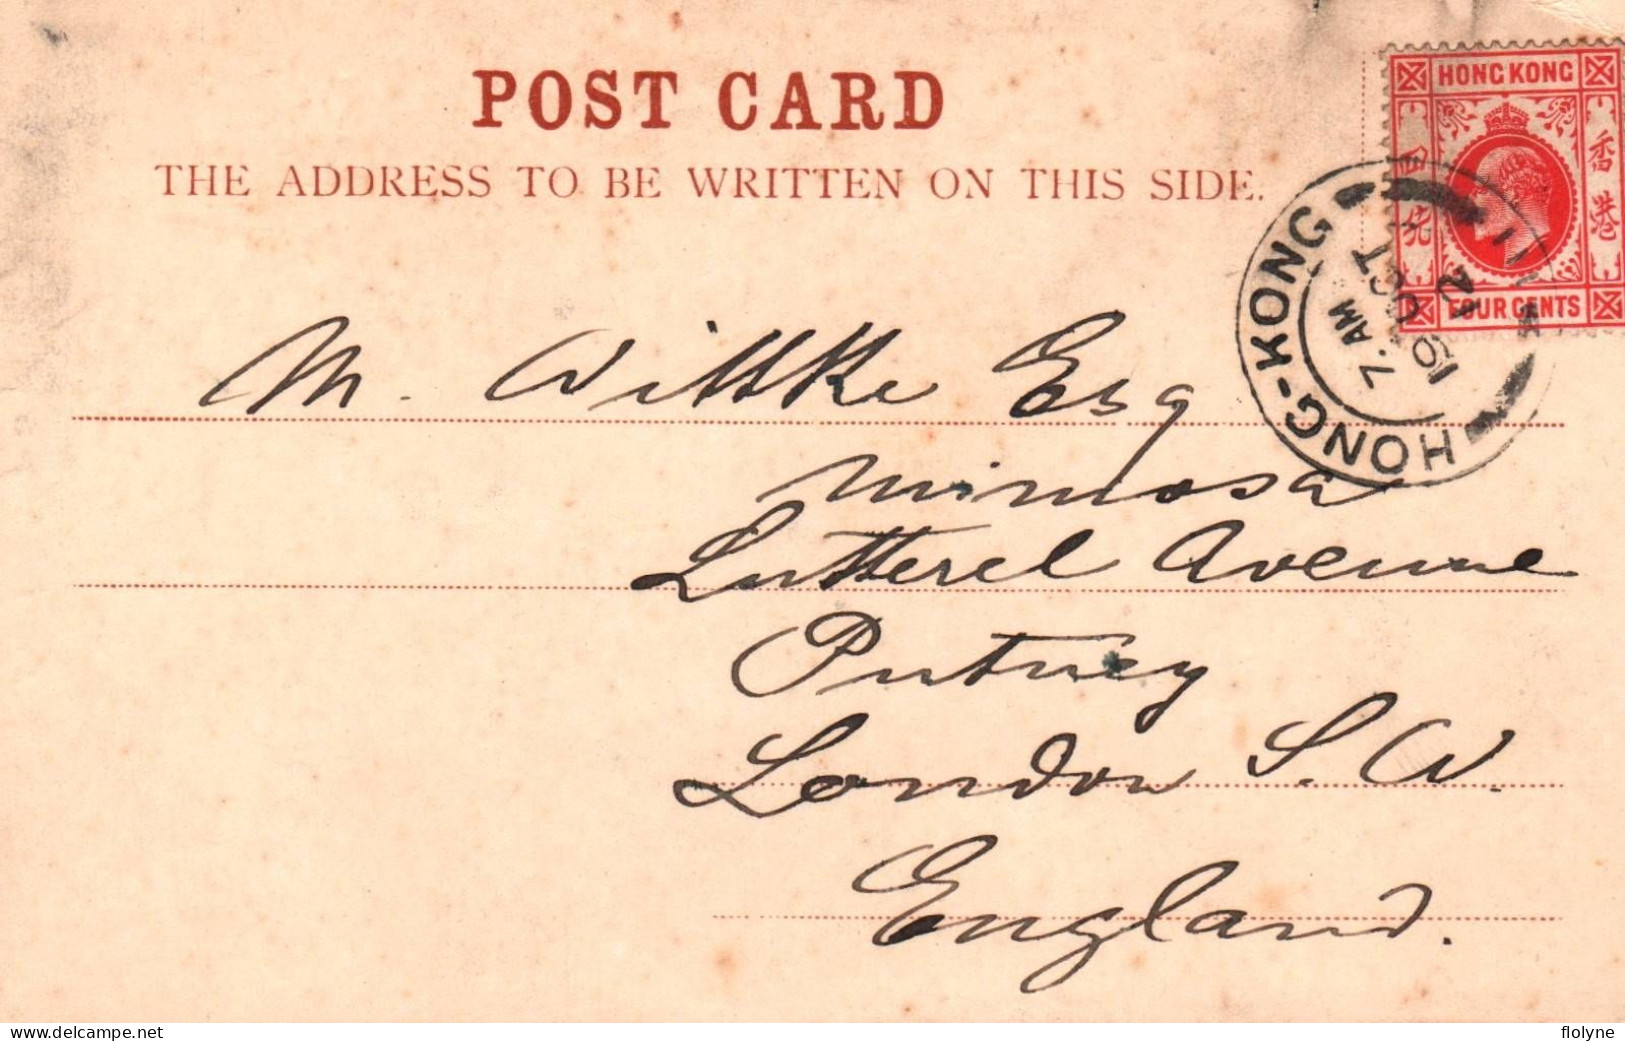 POST CARD
THE ADDRESS TO BE WRITTEN ON THIS SIDE.
HONG KONG
香港
四先
FOUR CENTS
HONG-KONG
7. AM
19 OCT
M. Wittke Esq
Mimosa
Lutterel Avenue
Putney
London S. W.
England.
www.delcampe.net
flolyne